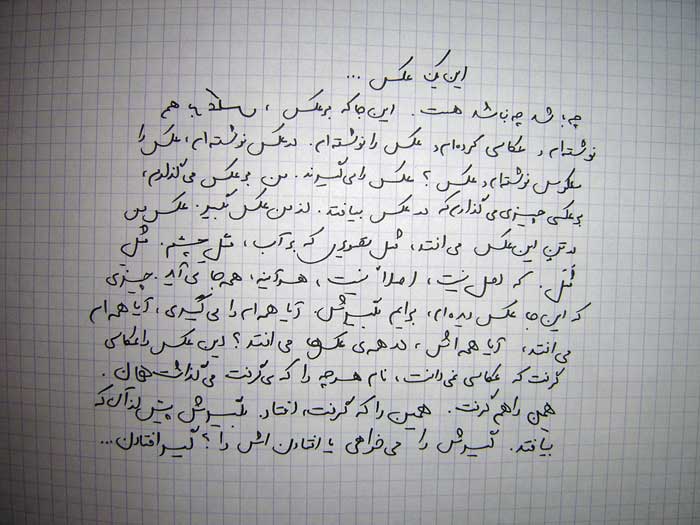 این یک عکس ...
چه باشد چه نباشد هست. این جا که برعکس، هم
نوشته‌ام و عکاسی کرده‌ام و عکس را نوشته‌ام. در عکس نوشته‌ام، عکس را
معکوس نوشته‌ام و عکس؟ عکس را می‌گیرند. من بر عکس می‌گذارم،
بر عکس چیزی می‌گذارم که در عکس بیافتد. از من عکس بگیر. عکس من
در تن این عکس می‌افتد، مثل تصویرش که بر آب، مثل چشم. مثل
مثل. که اصل نیست، اصلاً نیست، هر آینه، همه جا می‌آید. چیزی
که این جا عکس دیده‌ام، برایم بگیرش. آیا همه‌ام را می‌گیری، آیا همه‌ام
می‌افتد، آیا همه‌اش، در همه‌ی عکسها می‌افتد؟ این عکس را عکاسی
گرفت که عکاسی نمی‌دانست، نام هر چه را که می‌گرفت می‌گذاشت همان.
همین را هم گرفت. همین را که گرفت، افتاد. بگیرش پیش از آن که
بیافتد. گیرش را می‌خواهی یا افتادن اش را؟ گیر افتادن...